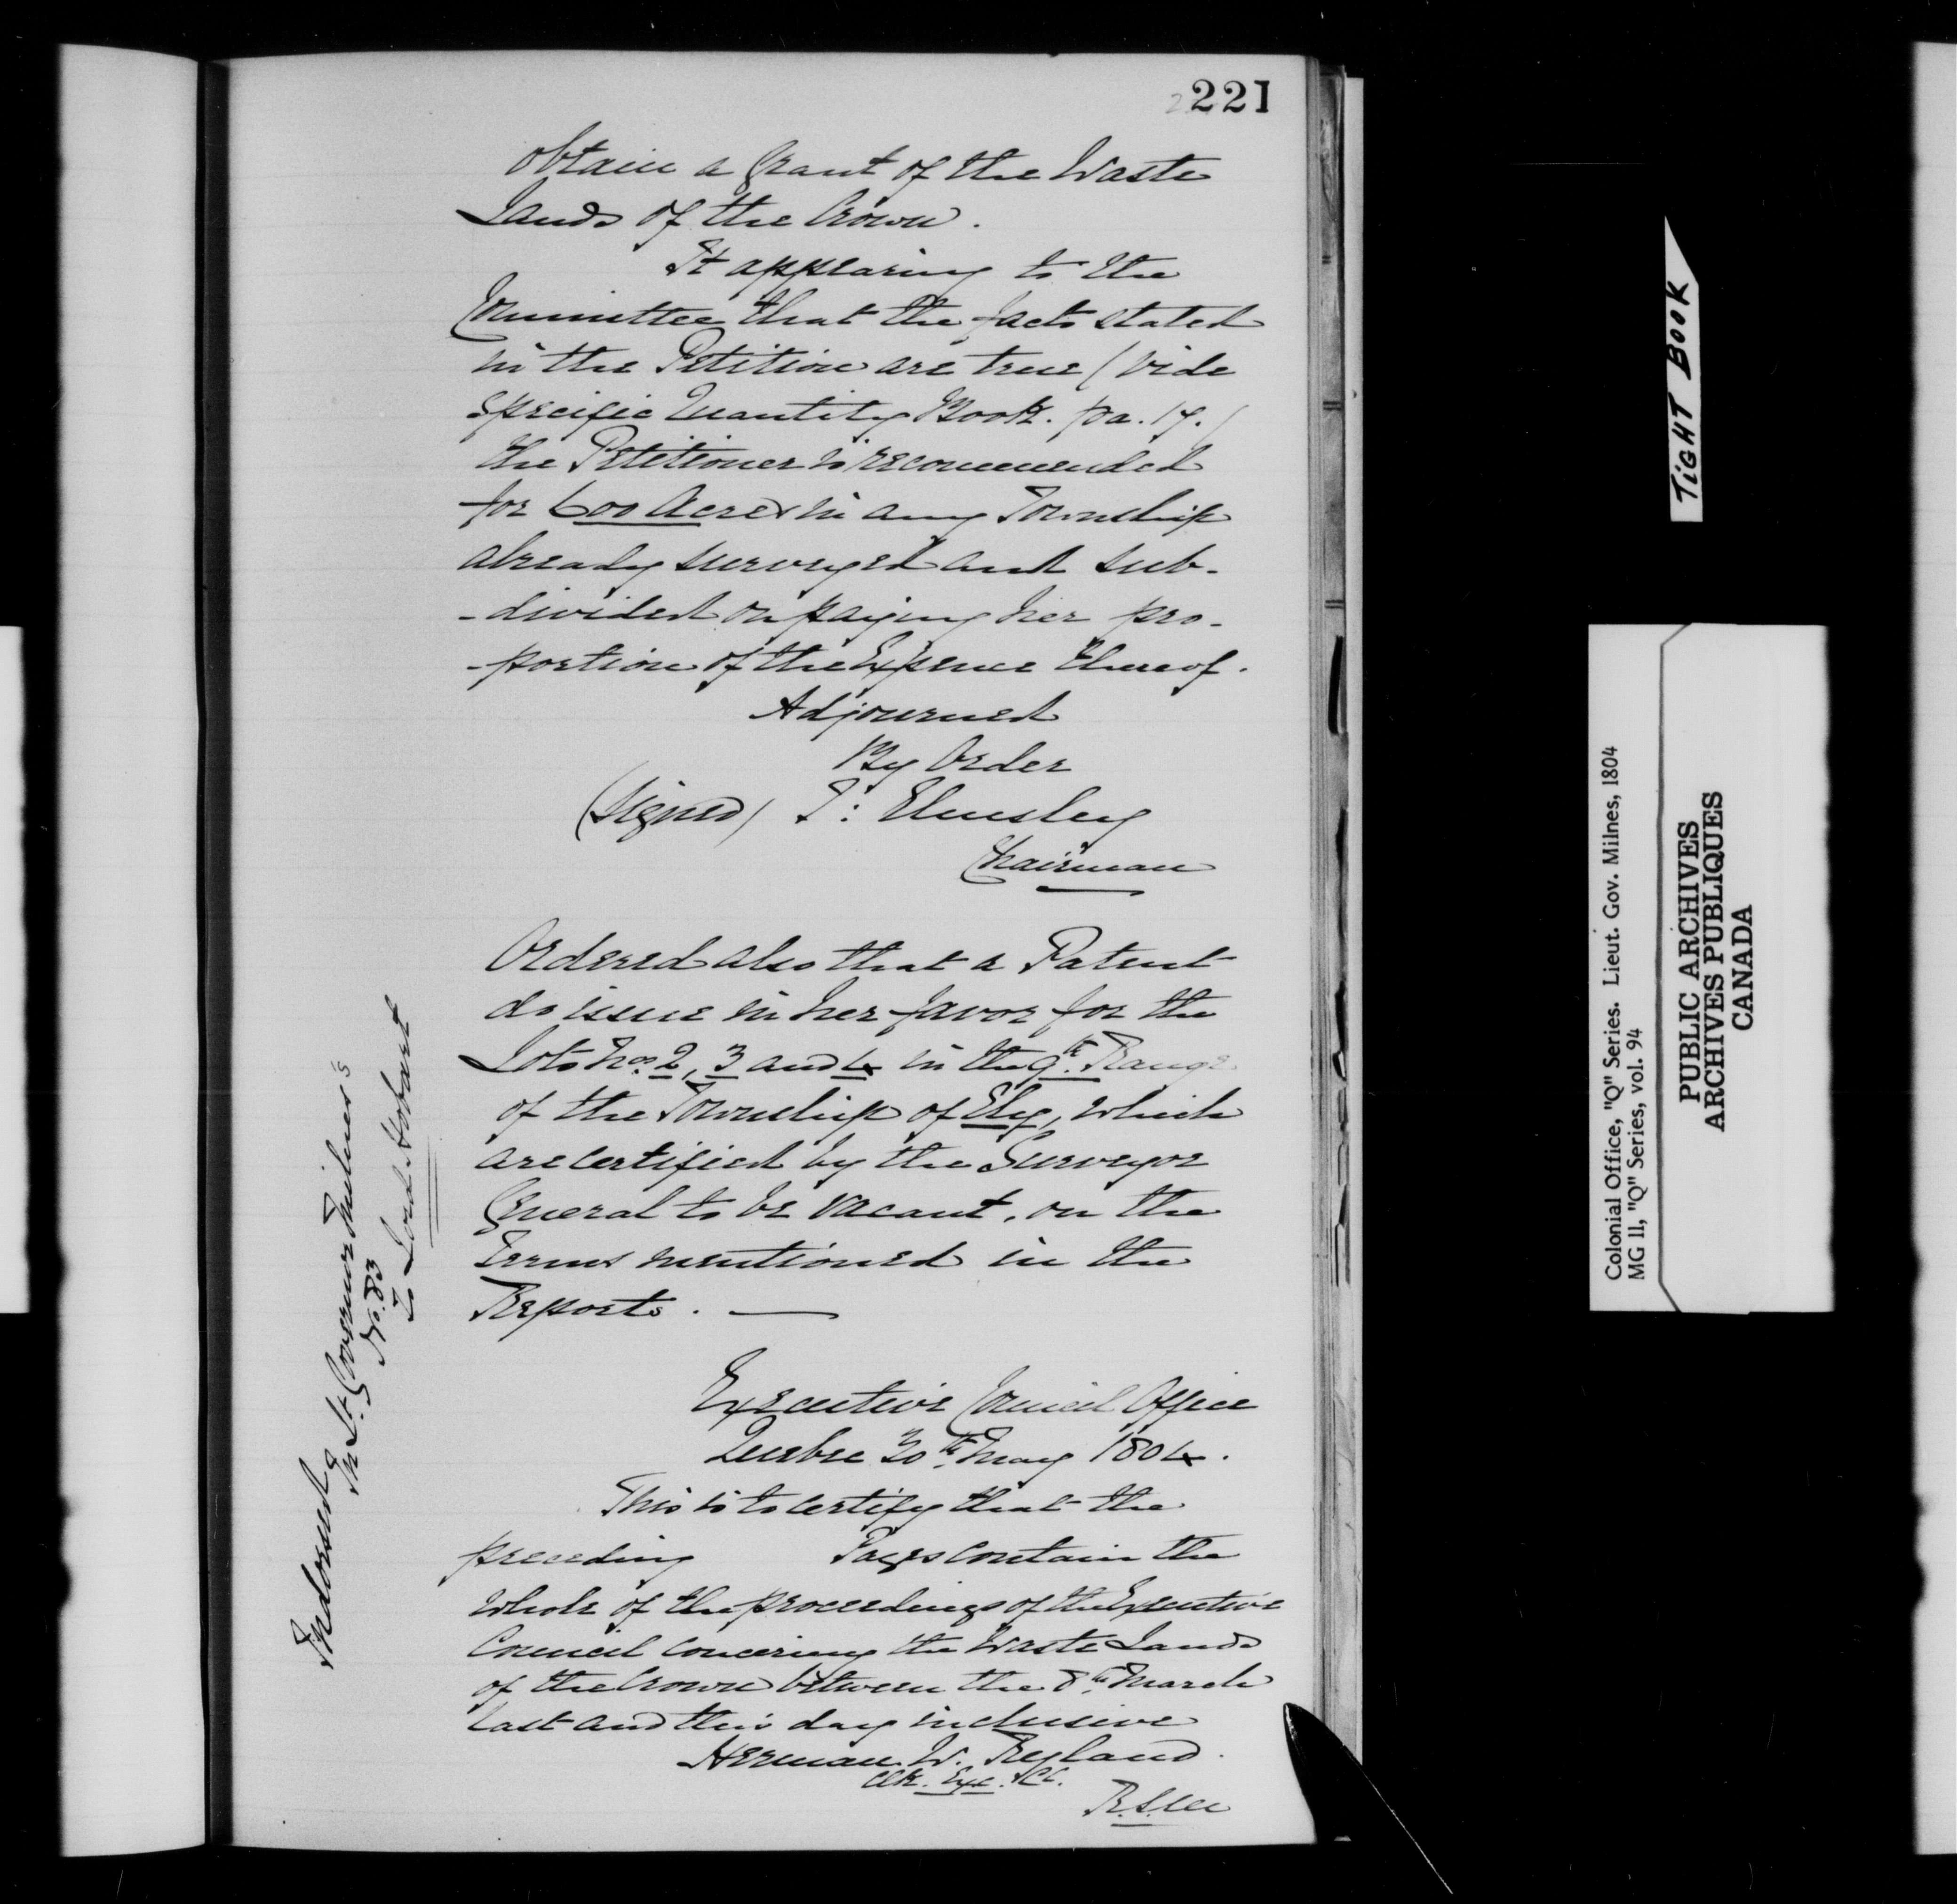 221
obtain a Grant of the Waste
Lands of the Crown.
It appearing to the
Committee that the facts stated
in the Petition are true (vide
Specific Quantity Book. pa. 17.)
the Petitioner is recommended
for 600 Acres in any Township
already surveyed and sub-
-divided on paying her pro-
-portion of the Expence thereof.
Adjourned
By Order
(Signed) J: Elmsley
Chairman
Ordered also that a Patent
do issue in her favor for the
Lots Nos. 2, 3 and 4 in the 9th. Range
of the Township of Ely, which
are certified by the Surveyor
General to be vacant, on the
Terms mentioned in the
Reports. —
Executive Council Office
Quebec 30th. May 1804.
This is to certify that the
preceding Pages contain the
whole of the proceedings of the Executive
Council concering the Waste Lands
of the Crown between the 8th. March
last and this day inclusive
Herman W. Ryland.
Clk. Exe. Cl.
Indorsed
In Lt. Governor Milnes's
No. 83
To Lord Hobart
TIGHT BOOK
Colonial Office, "Q" Series. Lieut. Gov. Milnes, 1804
MG 11, "Q" Series, vol. 94
PUBLIC ARCHIVES
ARCHIVES PUBLIQUES
CANADA